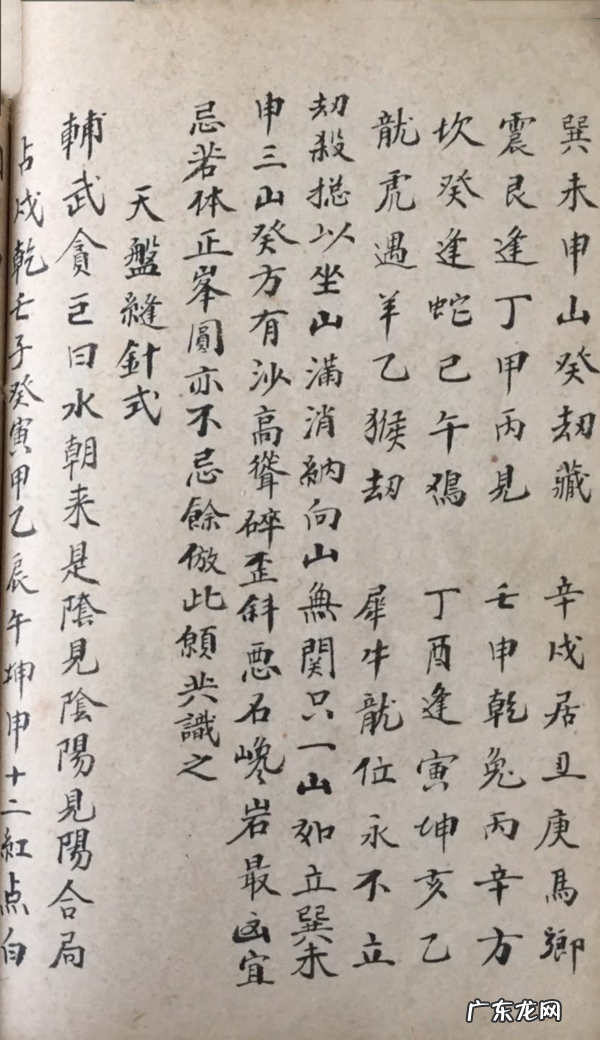 巽未申山癸刼藏　辛戌居丑庚馬鄉
震艮逢丁甲丙見　壬申乾兔丙辛方
坎癸逢蛇巳午鷄　丁酉逢寅坤亥乙
龍虎遇羊乙猴刼　犀牛龍位永不立
刼殺捴以坐山滿消納向山無関只一山如立巽未
申三山癸方有沙高聳碎歪斜惡石巉岩最凶宜
忌若体正峯圓亦不忌餘倣此願共識之
天盤縫針式
輔武貪巨曰水朝来是陰見陰陽見陽合局
占戌乾壬子癸寅甲乙辰午坤申十二紅点白
广东龙网